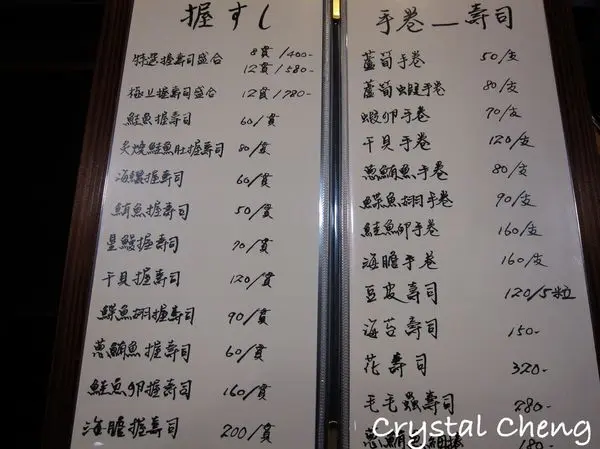 握すし
特選握壽司盛合 8貫/400-
12貫/580-
極上握壽司盛合 12貫/780-
鮭魚握壽司 60/貫
炙燒鮭魚肚握壽司 80/貫
海螺握壽司 60/貫
鮪魚握壽司 50/貫
星鰻握壽司 70/貫
干貝握壽司 120/貫
鰈魚翅握壽司 90/貫
蔥鮪魚握壽司 60/貫
鮭魚卵握壽司 160/貫
海膽握壽司 200/貫
手卷—壽司
蘆筍手卷 50/支
蘆筍蝦手卷 80/支
蝦卵手卷 70/支
干貝手卷 120/支
蔥鮪魚手卷 80/支
鰈魚翅手卷 90/支
鮭魚卵手卷 160/支
海膽手卷 160/支
豆皮壽司 120/5粒
海苔壽司 150-
花壽司 320-
毛毛蟲壽司 280-
蔥鮪魚細捲 180-
Crystal Cheng